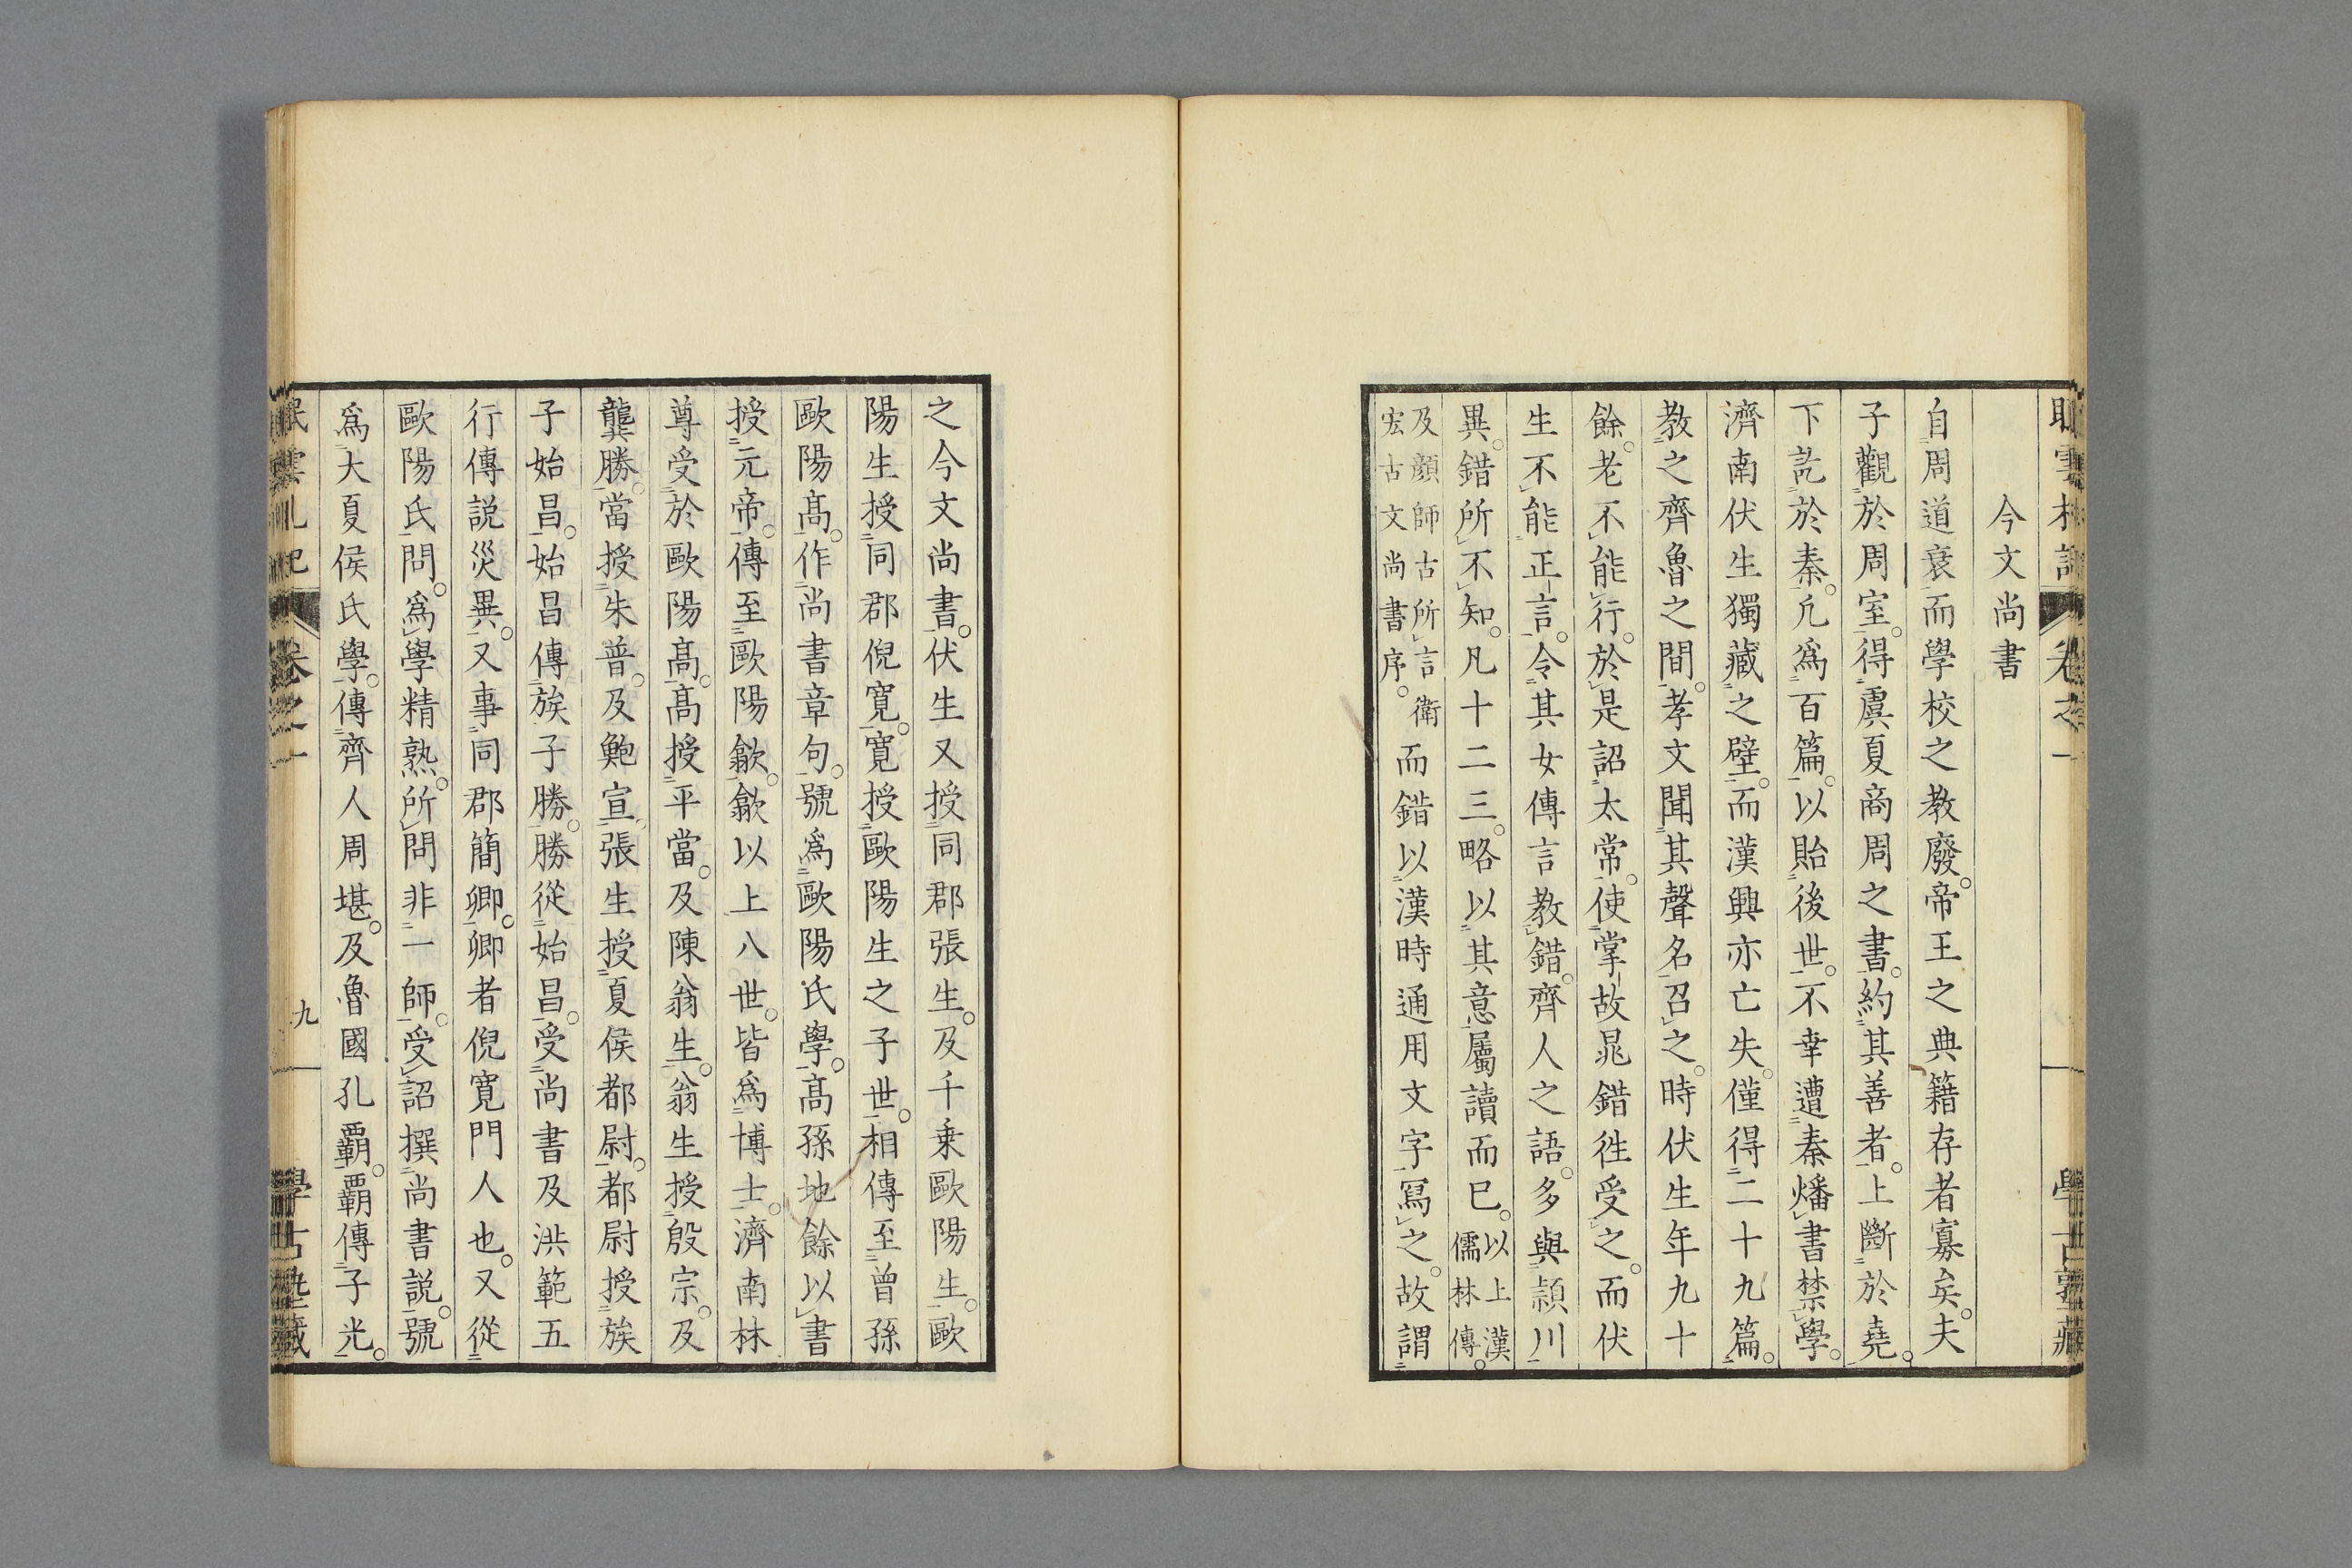 今文尚書
自周道衰而學校之教廢。帝王之典籍存者寡矣。夫
子觀於周室。得虞夏商周之書。約其善者。上斷於堯。
下訖於秦。凢爲百篇。以貽後世。不幸遭秦燔書禁學。
濟南伏生獨藏之壁。而漢興亦亡失。僅得二十九篇。
教之齊魯之間。孝文聞其聲名召之。時伏生年九十
餘。老不能行。於是詔太常。使掌故晁錯徃受之。而伏
生不能正言。令其女傳言教錯。齊人之語。多與頴川
異。錯所不知。凡十二三。略以其意屬讀而已。以上漢儒林傳。
及顏師古所言衛宏古文尚書序。而錯以漢時通用文字冩之。故謂
之今文尚書。伏生又授同郡張生。及千乗歐陽生。歐
陽生授同郡倪寛。寛授歐陽生之子世。相傳至曾孫
歐陽髙。作尚書章句。號爲歐陽氏學。髙孫地餘以書
授元帝。傳至歐陽歙。歙以上八世。皆爲博士。濟南林
尊受於歐陽髙。髙授平當。及陳翁生。翁生授殷宗。及
龔勝。當授朱普。及鮑宣。張生授夏侯都尉。都尉授族
子始昌。始昌傳族子勝。勝從始昌。受尚書及洪範五
行傳説災異。又事同郡簡卿。卿者倪寛門人也。又從
歐陽氏問。爲學精熟。所問非一師。受詔撰尚書説。號
爲大夏侯氏學。傳齊人周堪。及魯國孔霸。霸傳子光。
卷之一
九